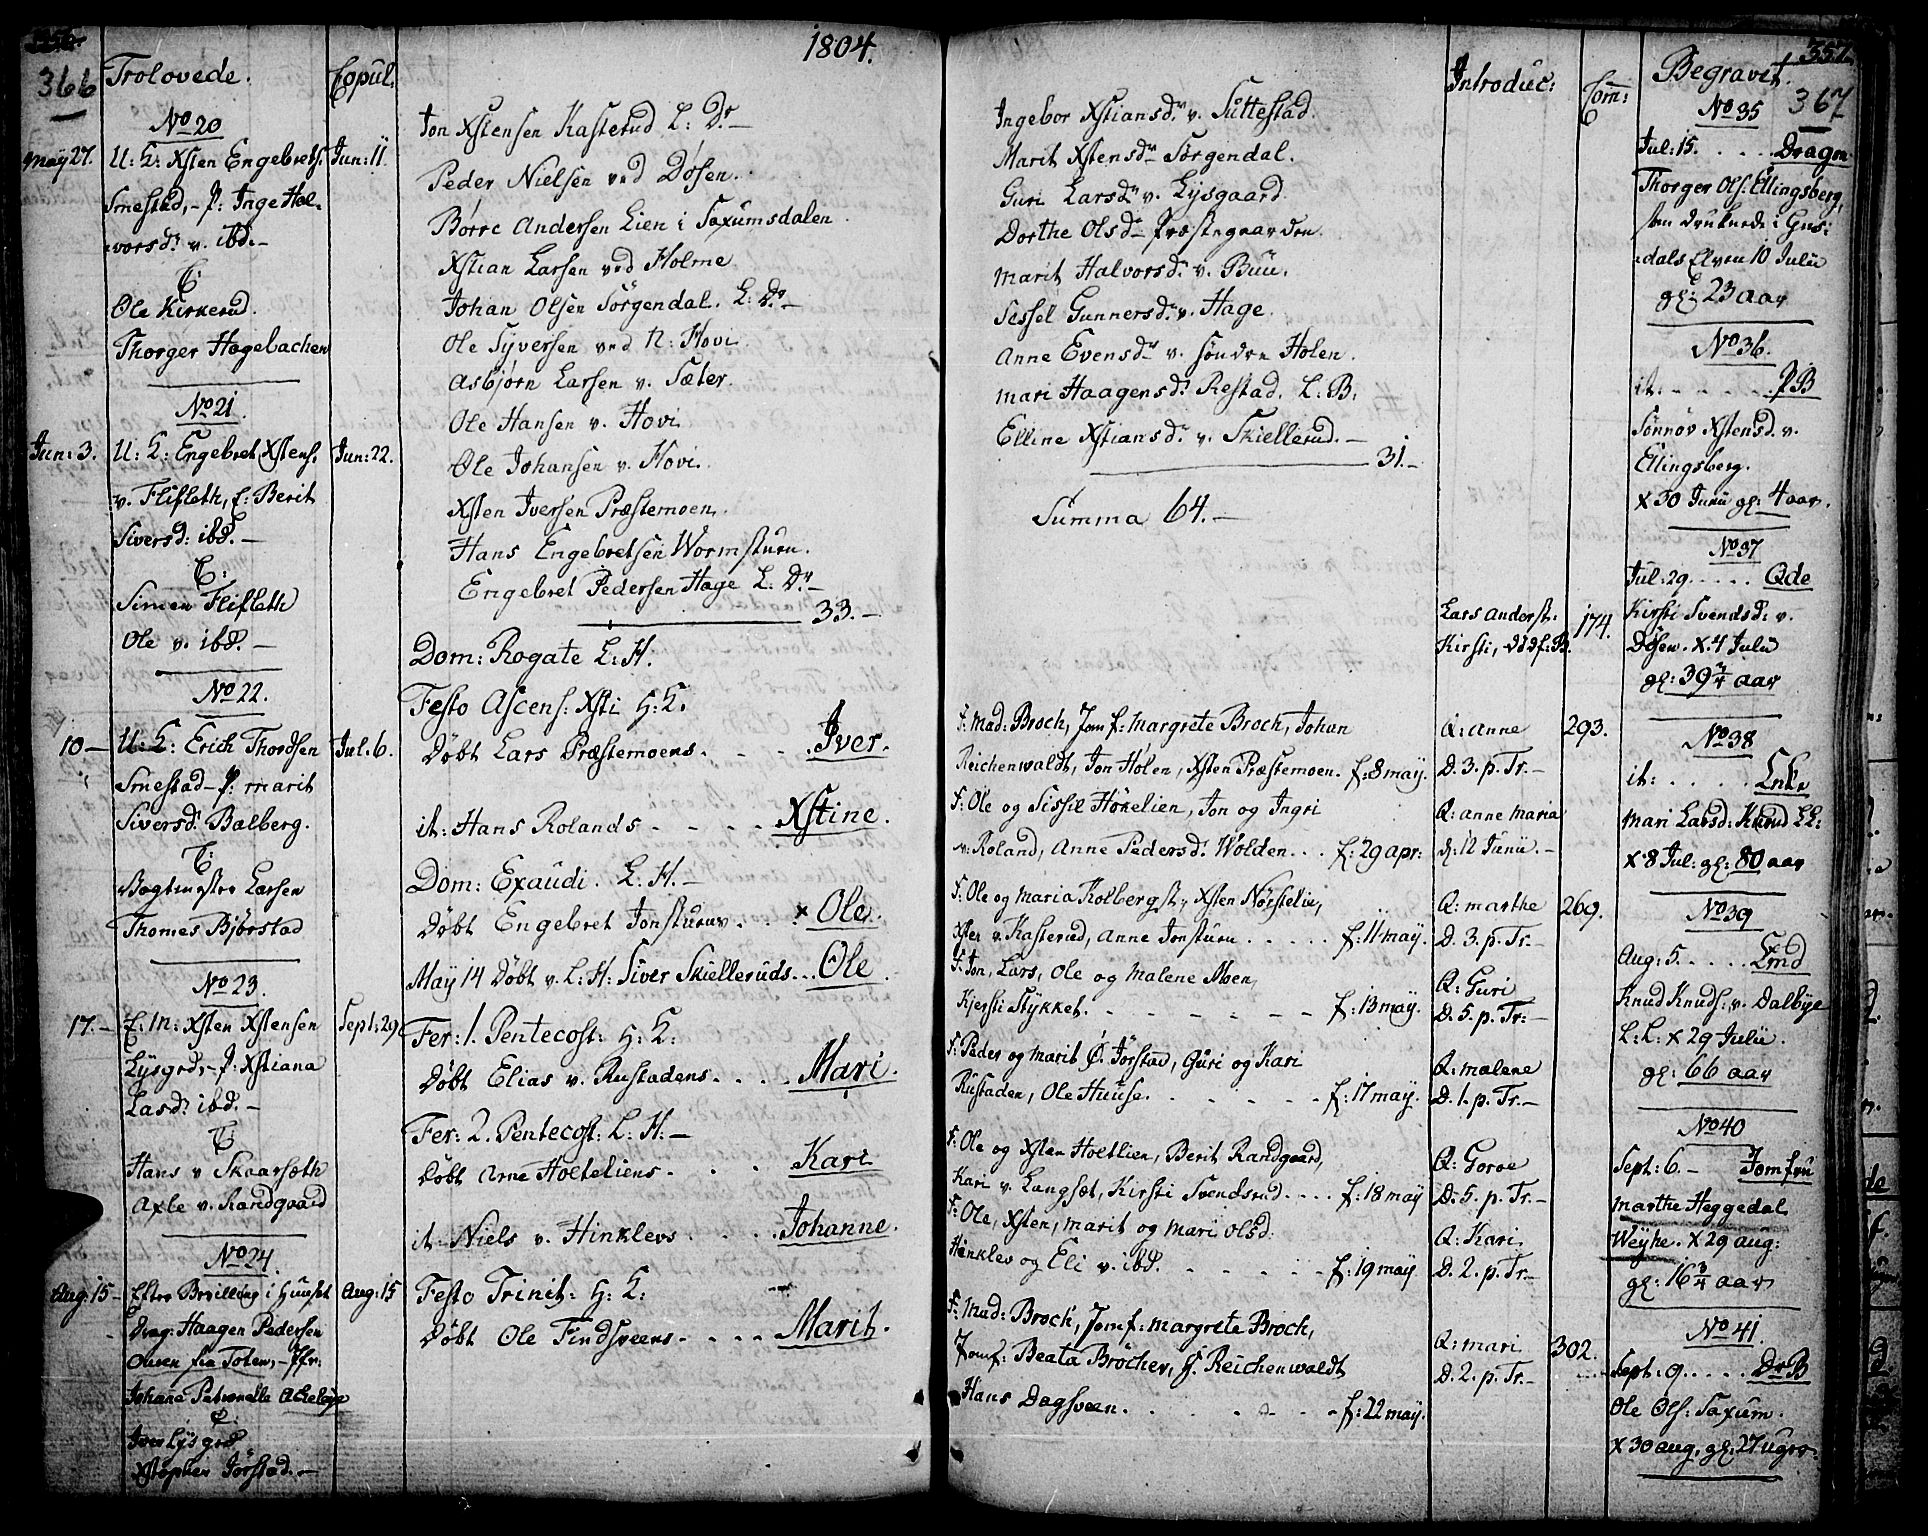 1804.
366
Trolovede.
Copul:
No 20
May 27. U: K: Xsten Engebrets. Jun: 11.
Smestad, - P: Inge Hal-
vorsd: v. ibd: -
C:
Ole Kirkerud.
Thorger Hagebachen
No 21.
Jun: 3. U: K: Engebret Xstens. Jun: 22.
v. Flifleth, P: Berit
Siversd: ibd. -
C:
Simen Flifleth
Ole v. ibd. -
No 22.
10 - U: K: Erich Thordsen Jul. 6.
Smestad - P: Marit
Siversd: Balberg.
C:
Vagtmester Larsen
Thomes Bjørstad
No 23.
17. - E: M: Xsten Xstensen Sept: 29
Lysgrd, - P: Xstiana
Lasd: ibd. -
C:
Hans v Skaarsæth
Axle v. Randgaard
No 24.
Aug: 15 - Efter Bevilling i Huuset Aug: 15
Drag: Haagen Pedersen
Olsen fra Toten, - Jfr:
Johane Petronelle Ackeleye
C:
Iver Lysgrd
Xstopher Jørstad. -
Jon Xstensen Kasterud L: Dr -
Peder Nielsen ved Døsen.
Børre Andersen Lien i Saxumsdalen.
Xstian Larsen ved Holme
Johan Olsen Sørgendal. L: Dr. -
Ole Syversen ved N: Hovi
Asbjørn Larsen v. Sæter.
Ole Hansen v. Hovi.
Ole Johansen v. Hovi.
Xsten Iversen Præstemoen.
Hans Engebretsen Wormsturn.
Engebret Pedersen Hage L: Dr -
33. -
Dom: Rogate L: H.
Festo Ascens: Xsti H: K.
Døbt Lars Præstemoens. . . . Iver.
it: Hans Rolands - - - - Xstine.
Dom: Exaudi. L. H. -
Døbt Engebret Jonsturnv. . x Ole.
May 14 Døbt v. L: H: Siver Skielleruds. .. Ole.
Fer: 1. Pentecost: H: K:
Døbt Elias v. Rustadens. . . . Mari.
Fer: 2. Pentecost: L: H: -
Døbt Arne Holteliens. . . . Kari
it: Niels v. Hinklevs . . . . Johanne.
Festo Trinit: H: K:
Døbt Ole Findsveens. . . . Marit.
Ingebor Xstiansdr v. Suttestad.
Marit Xstensdr Sørgendal.
Guri Larsdr v. Lysgaard.
Dorthe Olsdr Præstegaarden.
Marit Halvorsdr v. Buu.
Sissel Gunnersdr v. Hage.
Anne Evensdr v. Søndre Holen.
Mari Haagensdr Restad. L: B.
Elline Xstiansdr v. Skiellerud. -
31. -
Summa 64. -
F: Mad: Broch, Jomf: Margrete Broch, Johan
Reichenwaldt, Jon Holen, Xsten Præstemoen. f: 8 May.
F: Ole og Sissil Hønelien, Jon og Ingri
v: Roland, Anne Pedersd: Wolden. . . f: 29 apr:
F: Ole og Maria Kolbergst., Xsten Nørstelie,
Xsten v. Kasterud, Anne Jonsturn . . . . . f: 11 May.
F: Jon, Lars, Ole og Malene Moen,
Kjersti Stykket. - - - - - - f: 13 May.
F: Peder og Marit Ø. Jørstad, Guri og Kari
Rustaden, Ole Huuse. - - - - - f: 17 May.
F: Ole og Xsten Holtlien, Berit Randgaard,
Kari v. Langsæt, Kirsti Svendsrud . . . . f: 18 May
F: Ole, Xsten, Marit og Mari Olsd:
Hinklev og Eli v. ibd. - - - - - f: 19 May
F: Mad: Broch, Jomf: Margrete Broch,
Jomf: Beata Brøcher, H. Reichenwaldt
Hans Dagsveen. - - - - - f: 22 May.
Introduc:
Com:
Lars Anderst.
Kirsti, dødf: B. 174.
Q: Anne 293.
D. 3. p. Tr. -
Q: Anne Maria
d: 12 Junii. -
Q: Marthe 269.
D. 3. p. Tr. -
Q: Guri
D. 5. p. Tr: -
Q: Malene
D. 1. p. Tr. -
Q: Goroe
D: 5. p. Tr. -
Q: Kari.
D. 2. p. Tr. -
Q: Mari 302.
D. 2. p. Tr. -
357.
Begravet.
367
No 35
Jul: 15. . . . Dragn
Thorger Ols: Ellingsberg,
som druknede i Gus-
dals Elven 10 Julii
gl: 23 aar
No 36.
it: - - - - - PB
Sønnøv Xstensd. v.
Ellingsberg.
x 30 Junii gl: 4 aar.
No 37
Jul: 29. . . . . Qde
Kirsti Svendsd: v.
Døsen. x. 4 Julii
gl: 39 3/4 aar
No 38
it: . . . . . Enke
Mari Larsd: Kurud LL:
x 8 Jul: gl: 80 aar
No 39
Aug: 5. . . . . Emd
Knud Knuds: v. Dalbye
L: L: x 29 Julii.
gl: 66 aar
No 40
Sept: 6. - Jomfru
Marthe Heggedal
Weyhe. x 29 aug:
gl: 16 3/4 aar
No 41.
Sept: 9. . . . . DrB
Ole Ols: Saxum.
x 30 aug. gl: 27 uger.